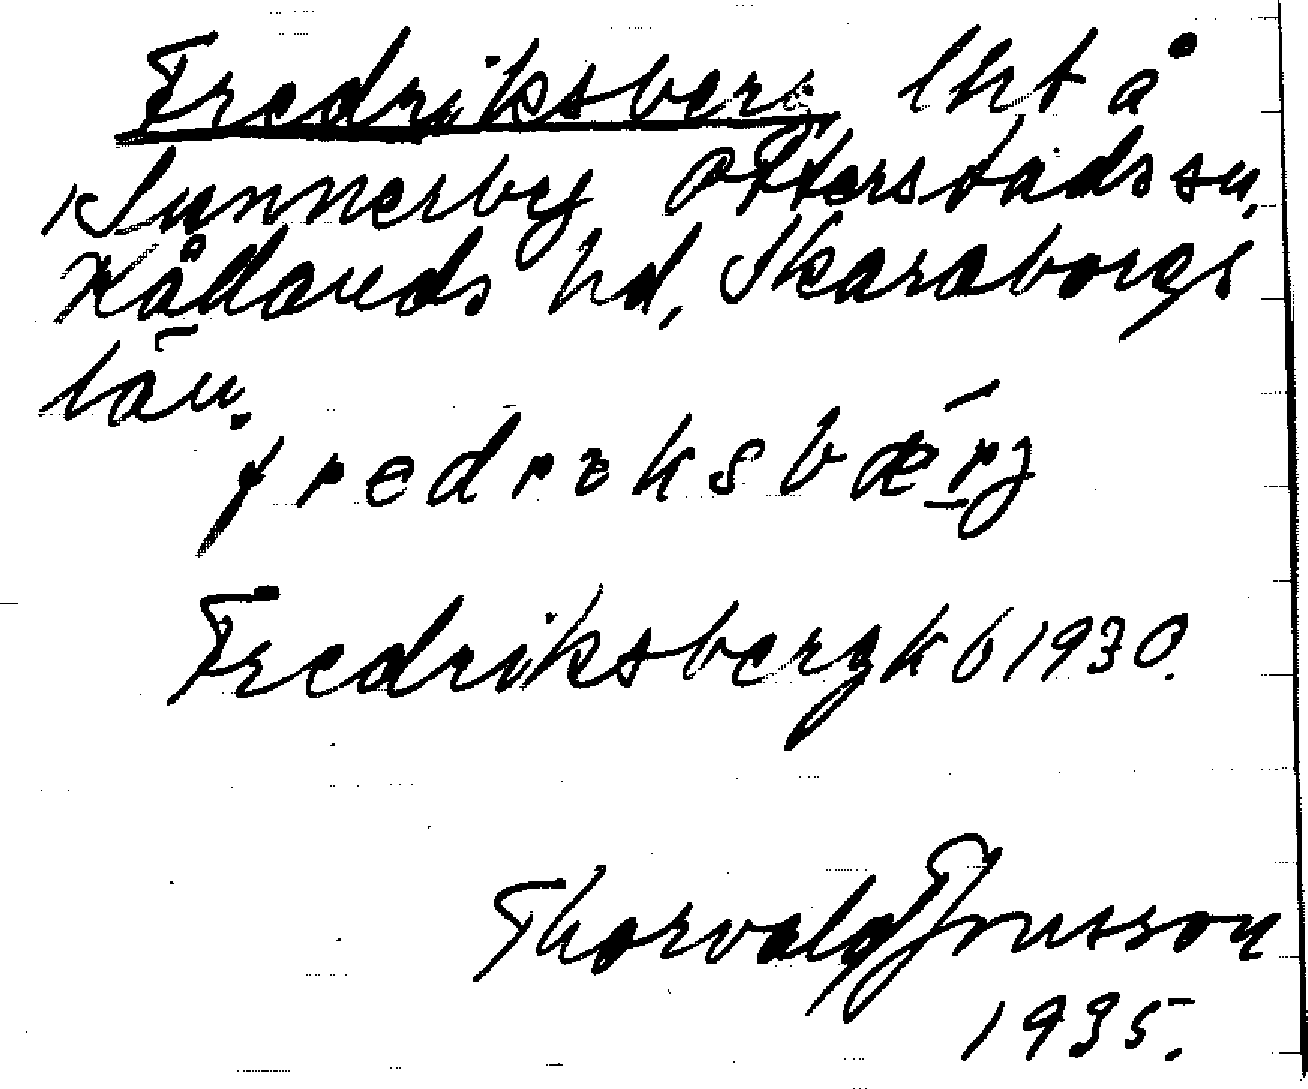 Fredriksberg lht å
Sunnerby Otterstads sn,
Kållands hd, Skaraborgs
län.
fredrɪksbæ̀rj
Fredriksberg kb 1930.
Thorvald Jonsson
1935.